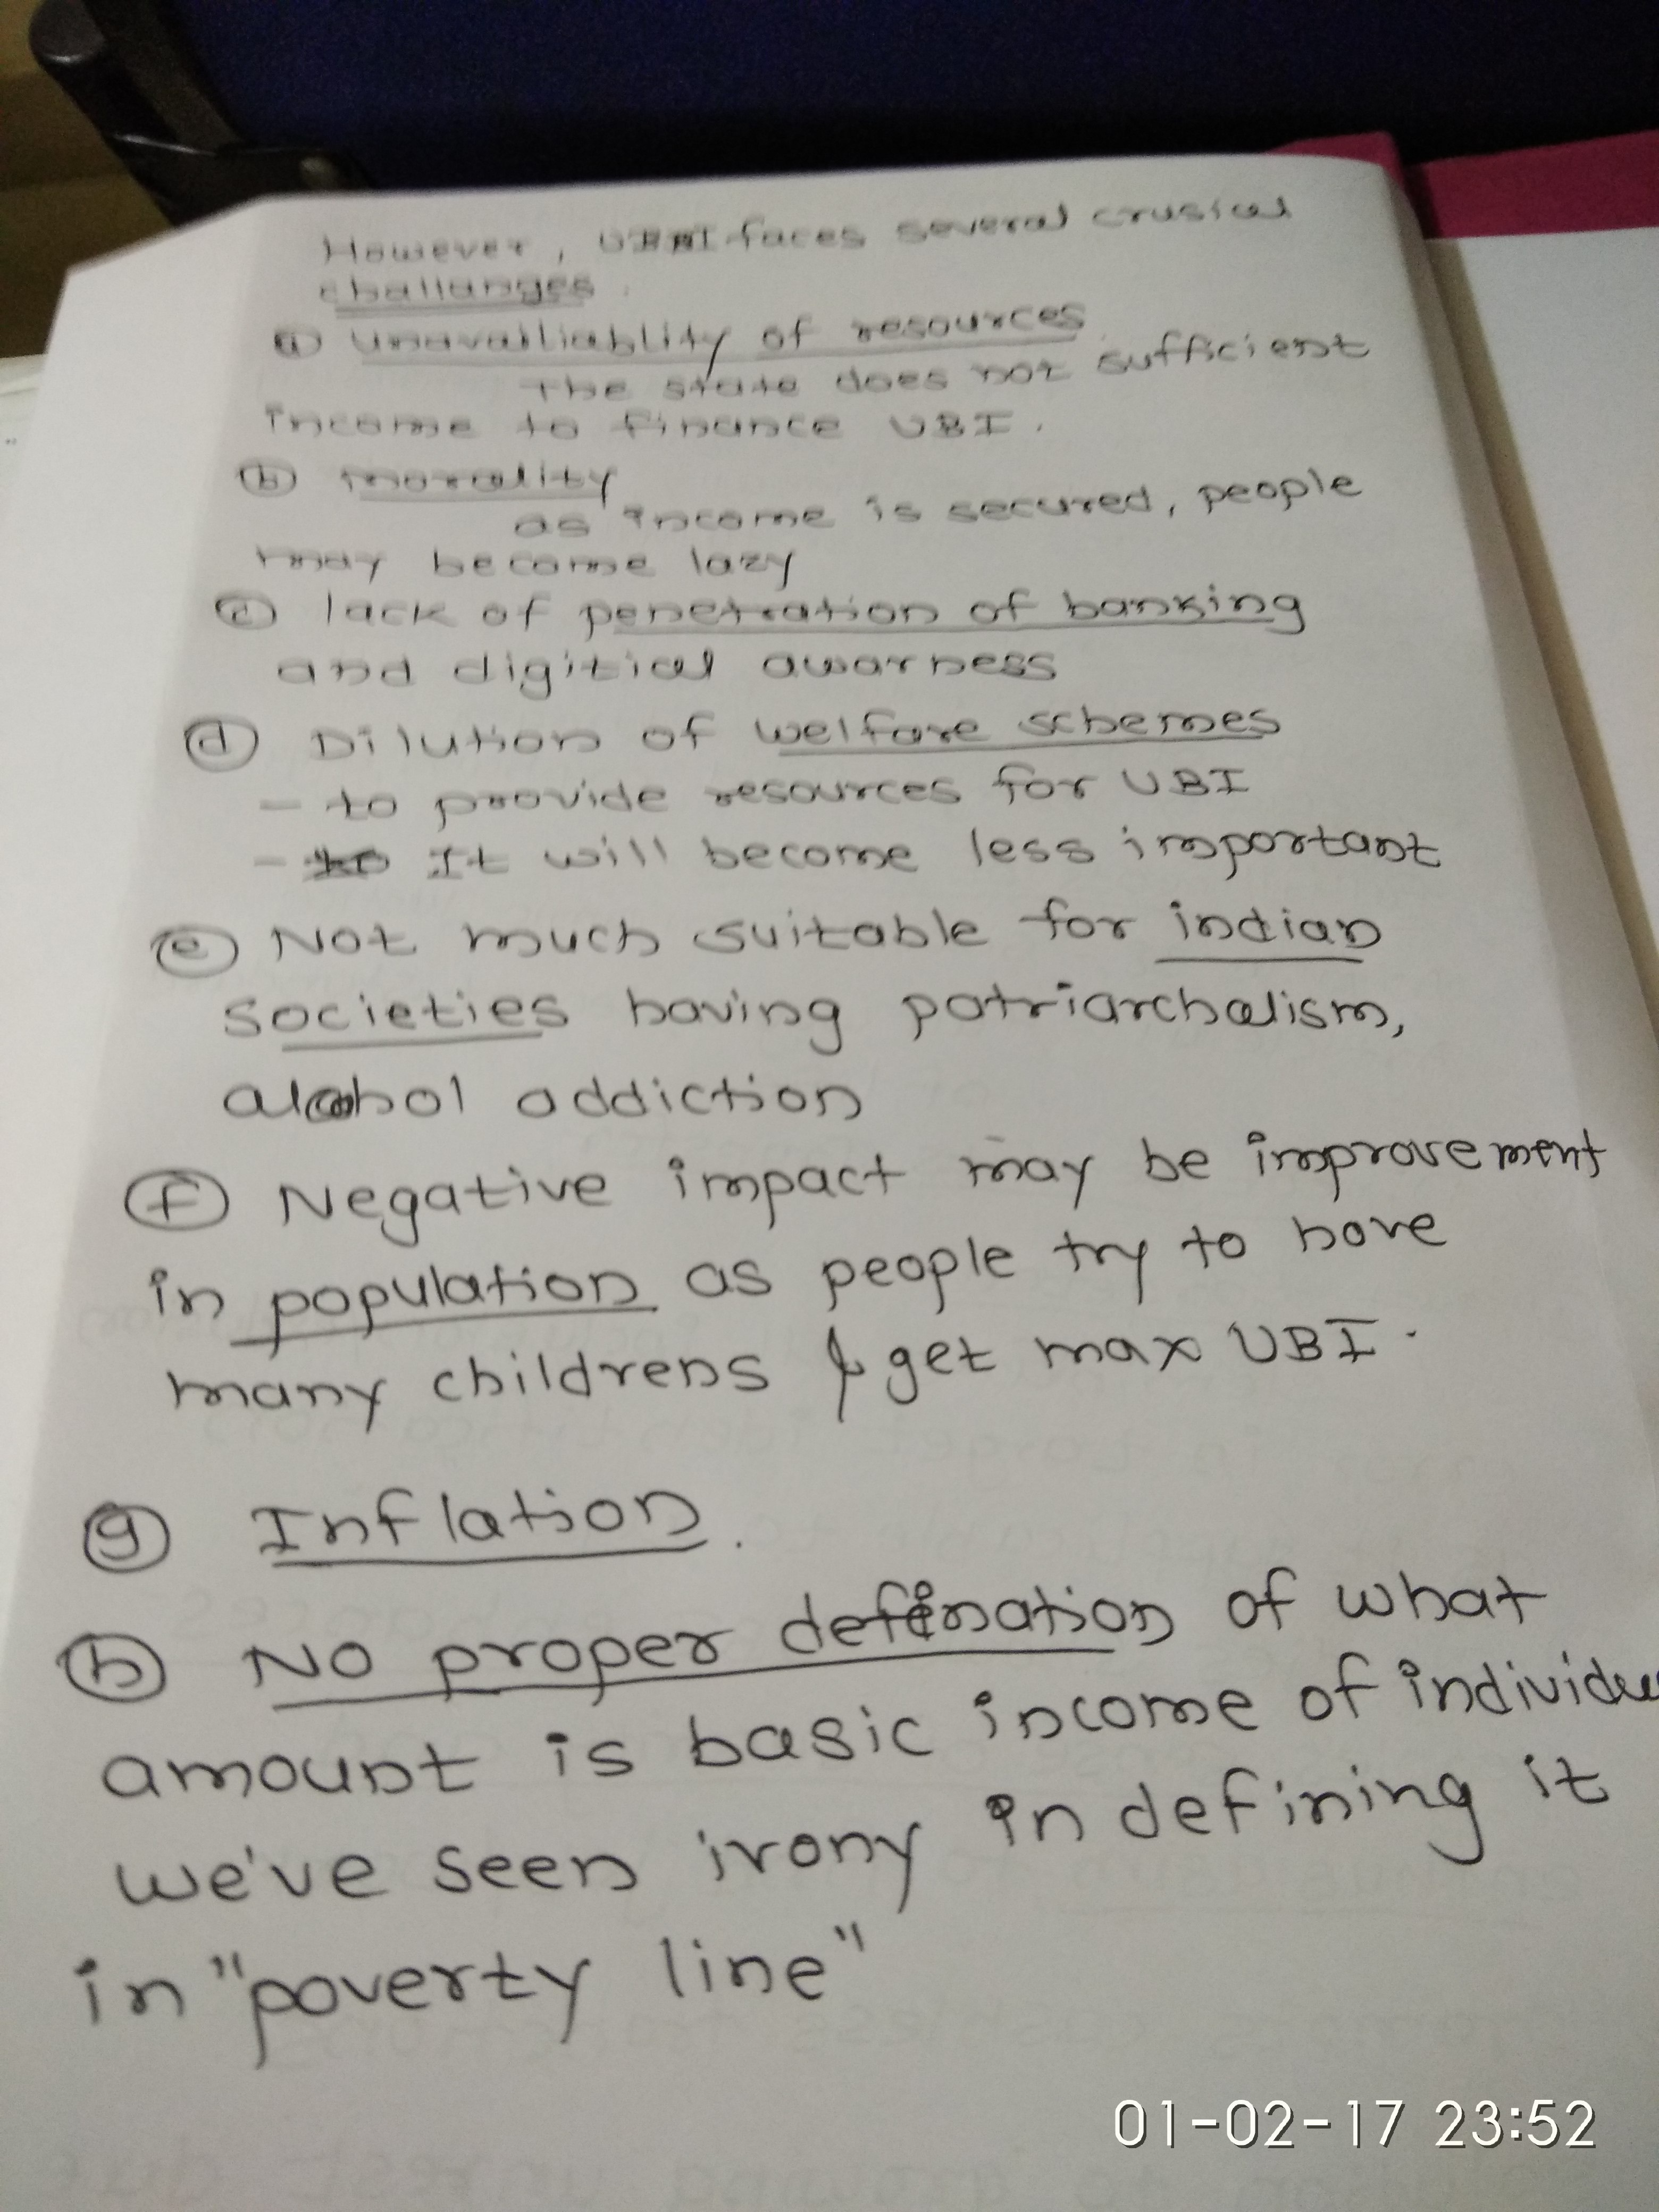 However, UBI faces several crusial
challanges.
(a) unavailiablity of resources
The state does not sufficient
income to finance UBI.
(b) morality
as income is secured, people
may become lazy
(c) lack of penetration of banking
and digitial awarness
(d) Dilution of welfare schemes
- to provide resources for UBI
- It will become less important
(e) Not much suitable for indian
societies having patriarchalism,
alcohol addiction
(f) Negative impact may be improvement
in population as people try to have
many childrens & get max UBI.
(g) Inflation.
(h) No proper defination of what
amount is basic income of individu
we've seen irony in defining it
in "poverty line"
01-02-17 23:52